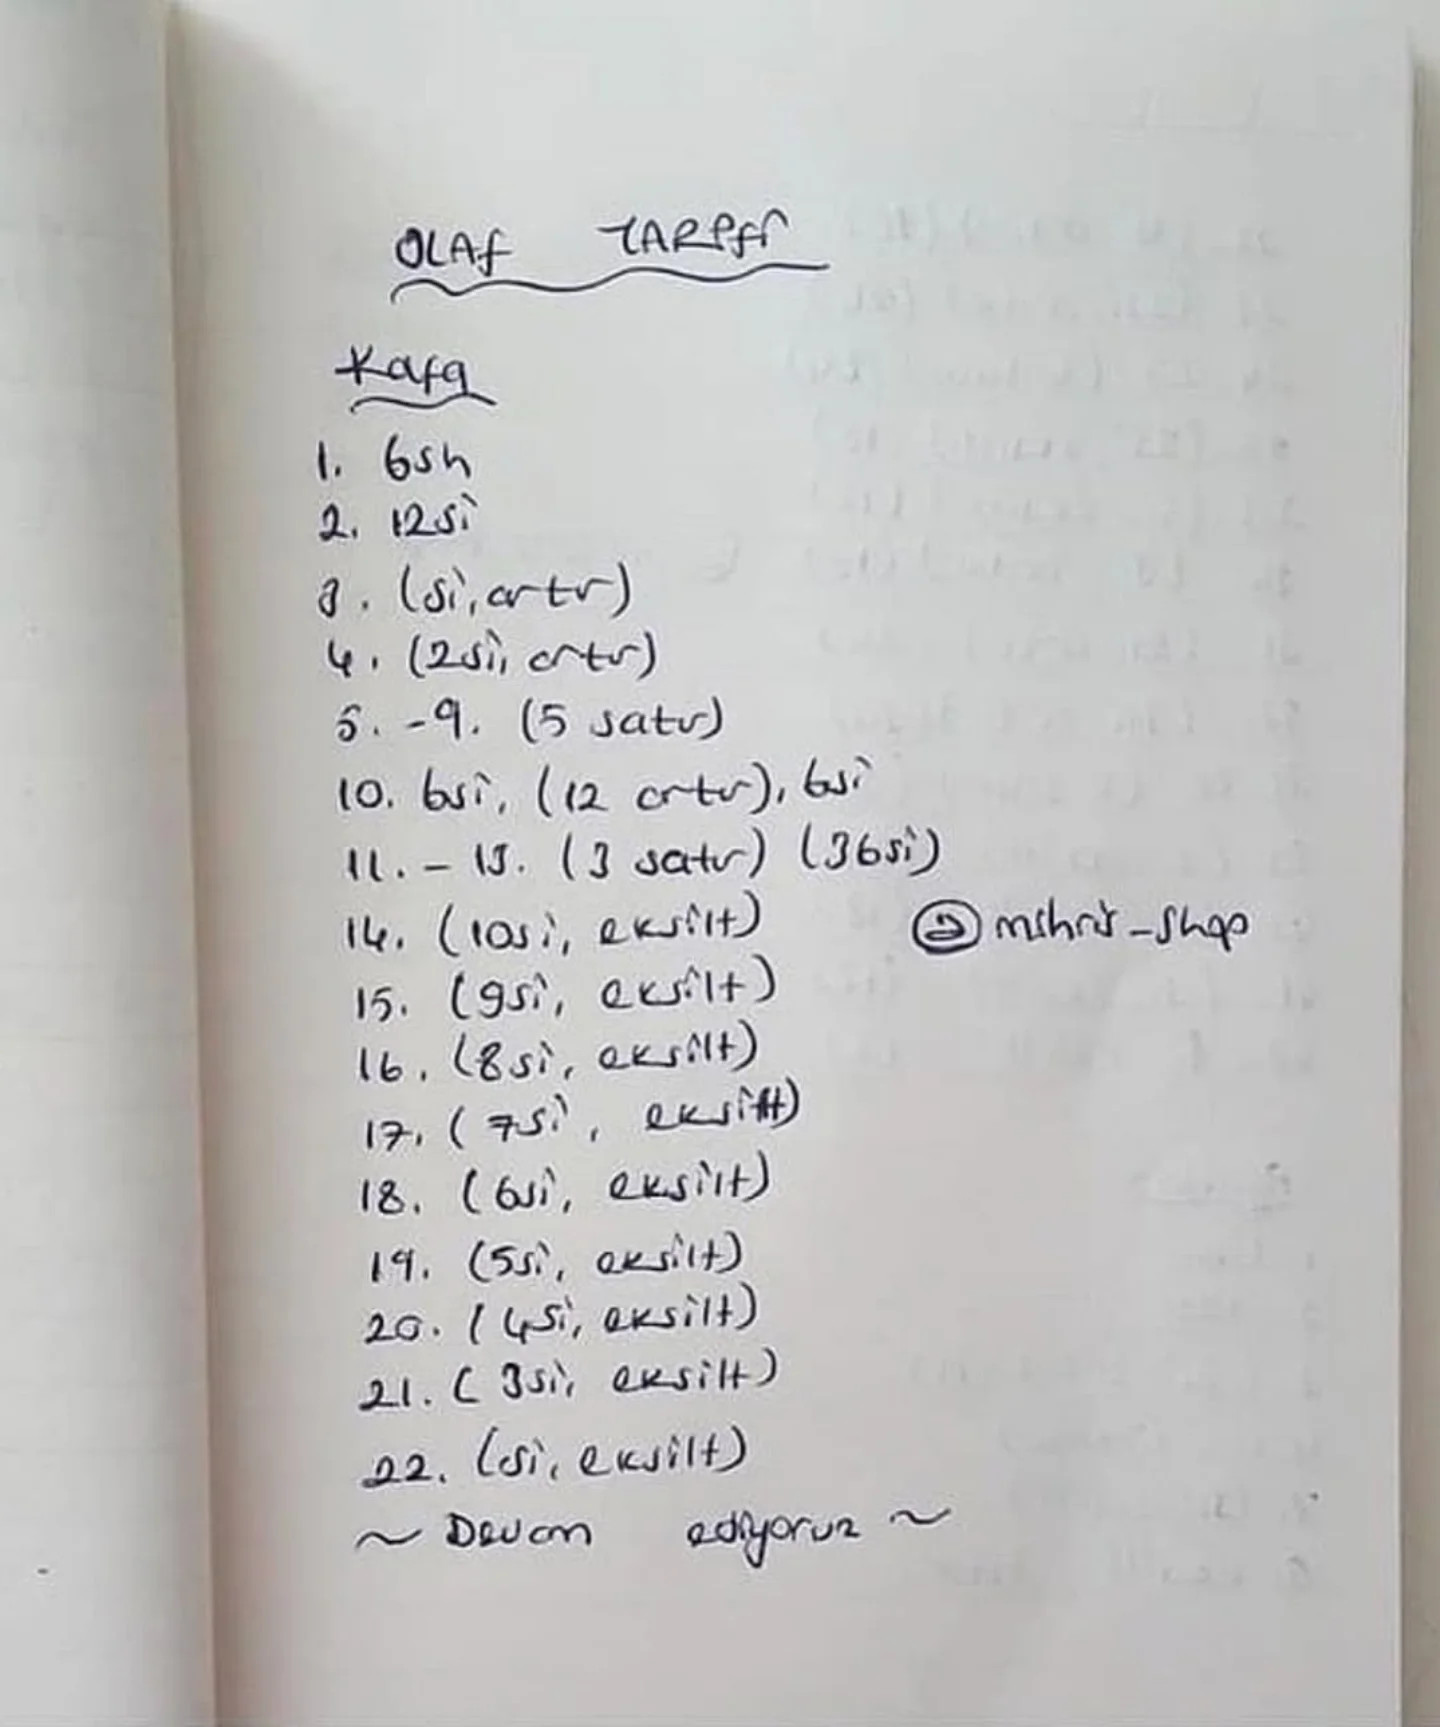 OLAf TARİFİ
Kafa
1. 6sh
2. 12si
3. (si, artır)
4. (2si, artır)
5. -9. (5 satır)
10. 6si, (12 artır), 6si
11. - 13. (3 satır) (36si)
14. (10si, eksilt)
@mihris_shop
15. (9si, eksilt)
16. (8si, eksilt)
17. (7si, eksilt)
18. (6si, eksilt)
19. (5si, eksilt)
20. (4si, eksilt)
21. (3si, eksilt)
22. (si, eksilt)
~ Devam ediyoruz ~